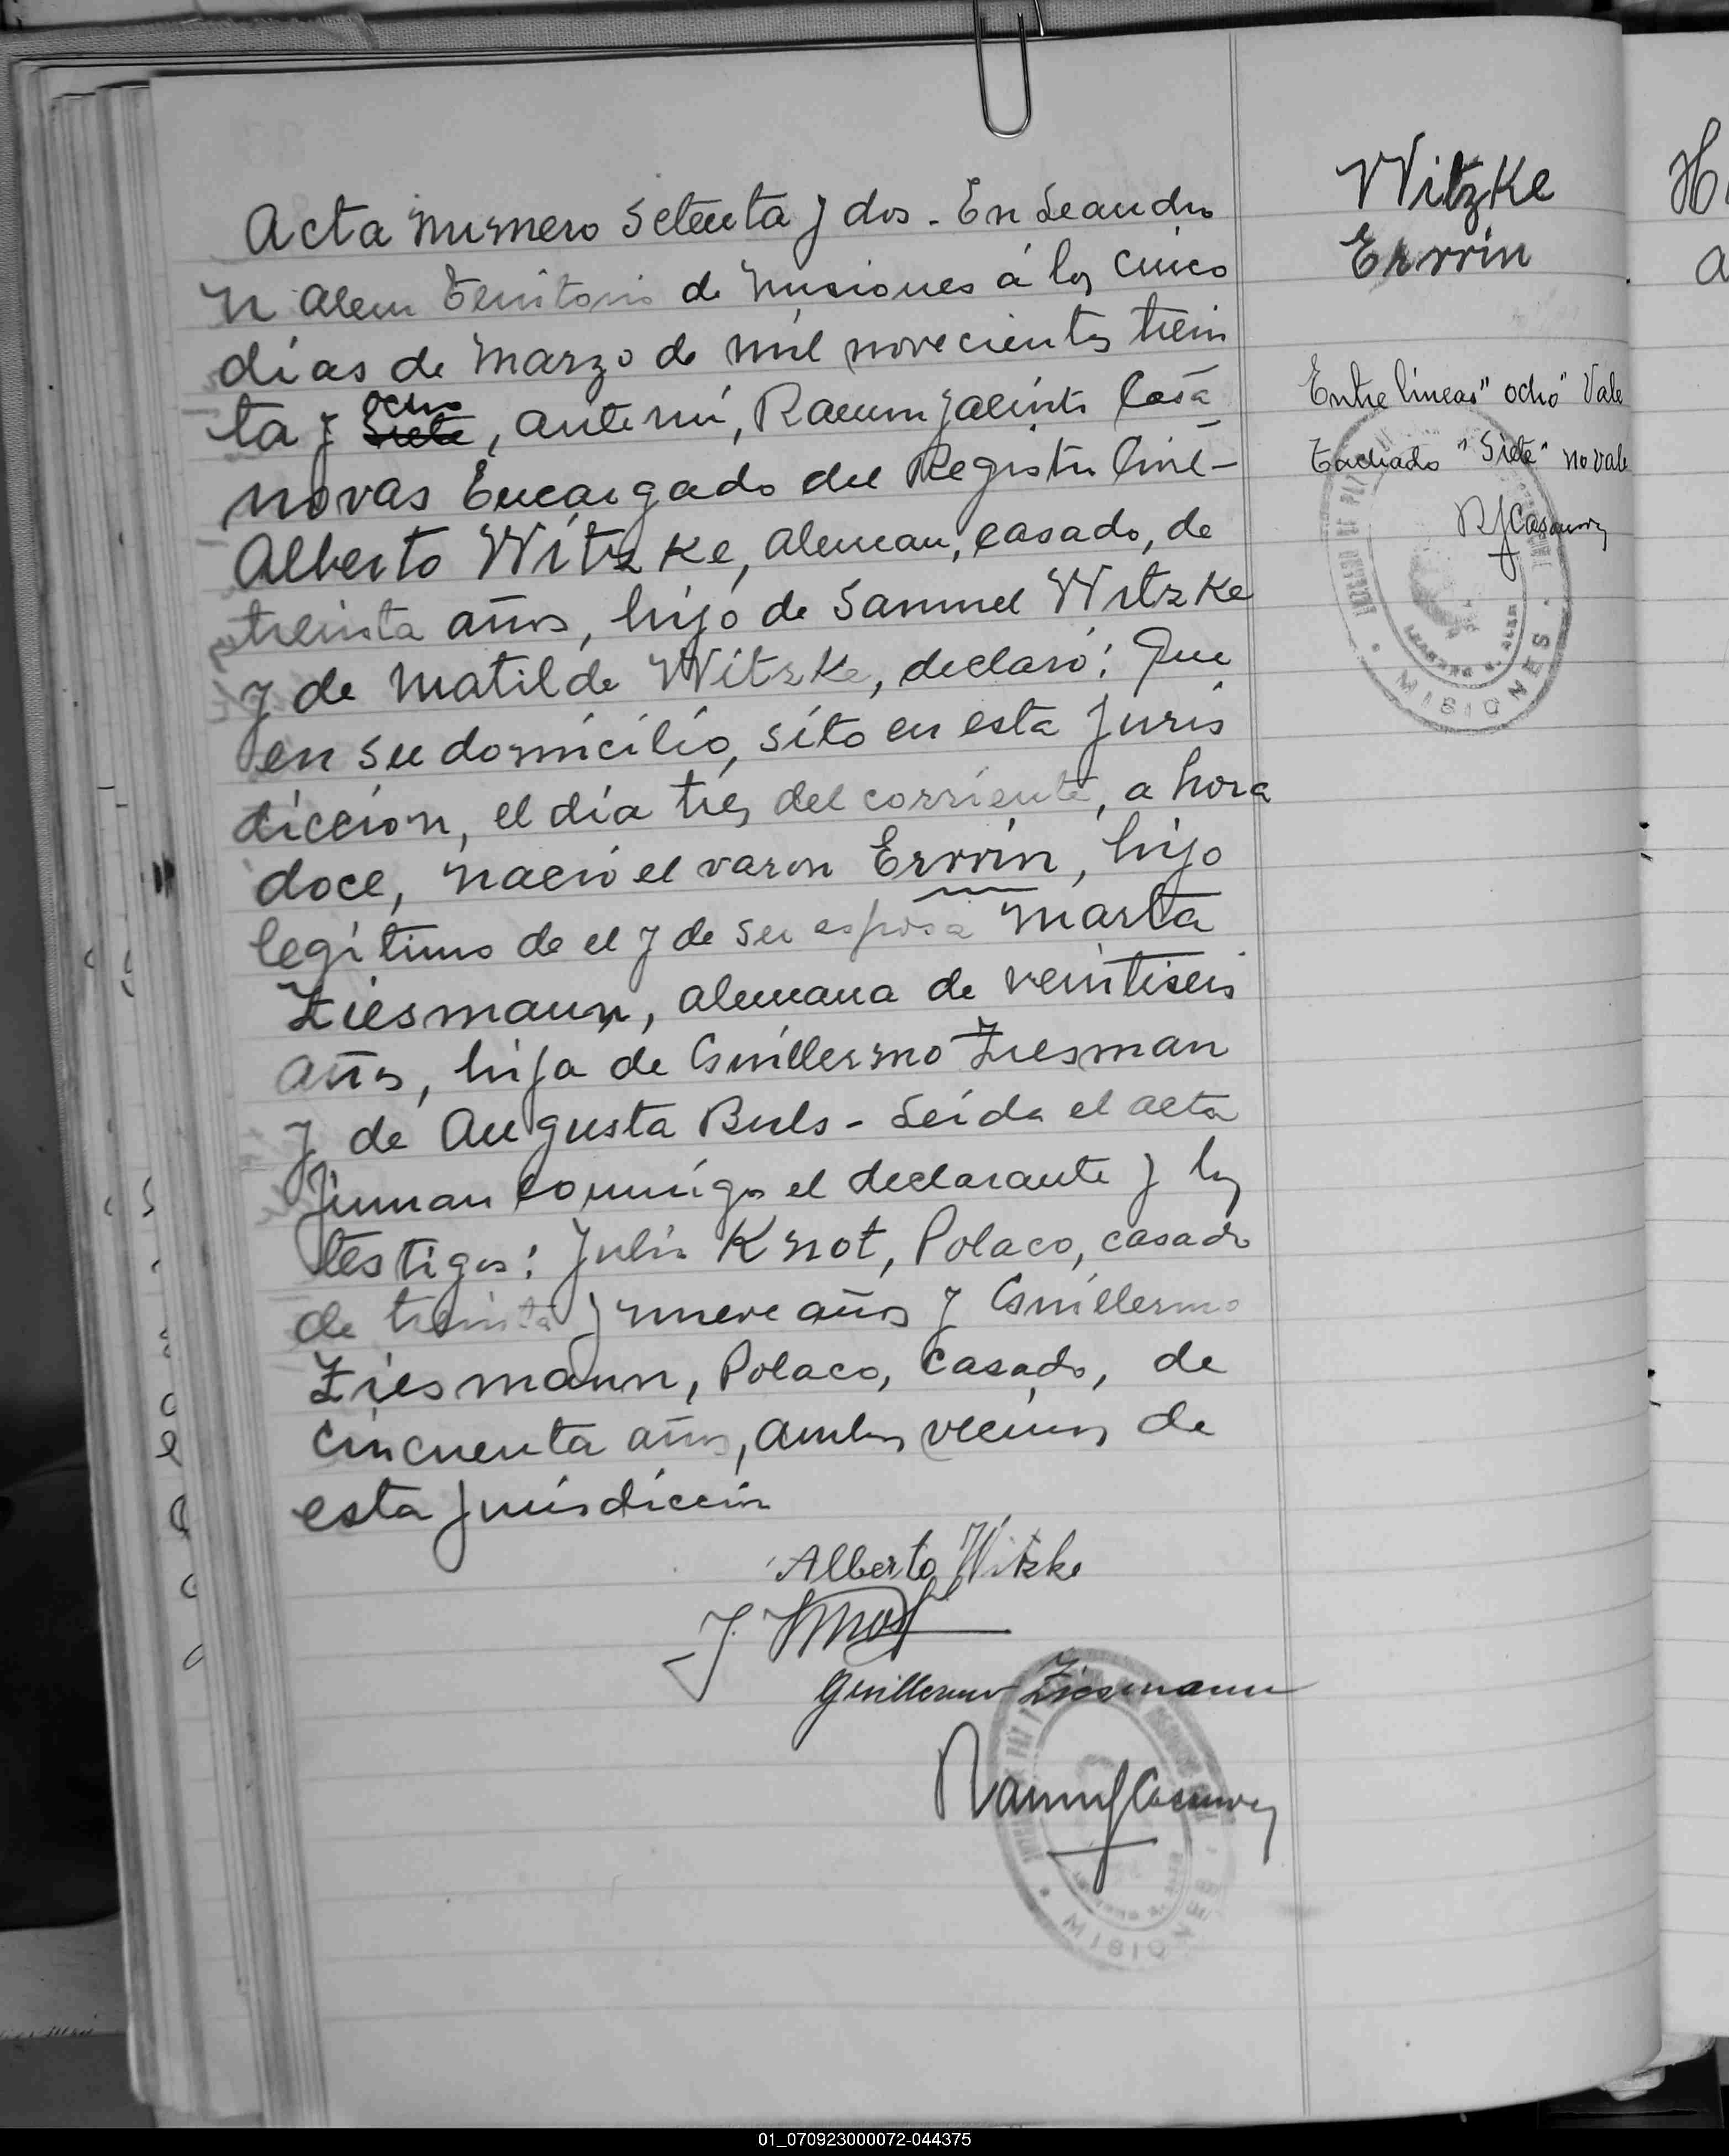 Acta Numero Setenta y dos - En Leandro
N Alem Territorio de Misiones á los cinco
días de Marzo de mil novecientos trein
ta y ocho
siete, ante mí, Ramon Jacinto Casa
novas Encargado del Registro Civil -
Alberto Witzke, aleman, casado, de
treinta años, hijo de Samuel Witzke
y de Matilde Witzke, declaró: Que
en su domicilio, sito en esta juris
dicción, el día tres del corriente, a hora
doce, nació el varon Erwin, hijo
legítimo de el y de su esposa Marta
Ziesmann, alemana de veintiseis
años, hija de Guillermo Ziesman
y de Augusta Buls - Leída el acta
firman conmigo el declarante y los
testigos: Julio Knot, Polaco, casado
de treinta y nueve años y Guillermo
Ziesmann, Polaco, casado, de
cincuenta años, ambos vecinos de
esta jurisdiccion
Alberto Witzke
J. Knot
Guillermo Ziesmann
Ramon J Casanovas
MISIONES
Witzke
Erwin
Entre lineas "ocho" Vale
Tachado "Siete" no vale
RJCasanovas
MISIONES
01_070923000072-044375